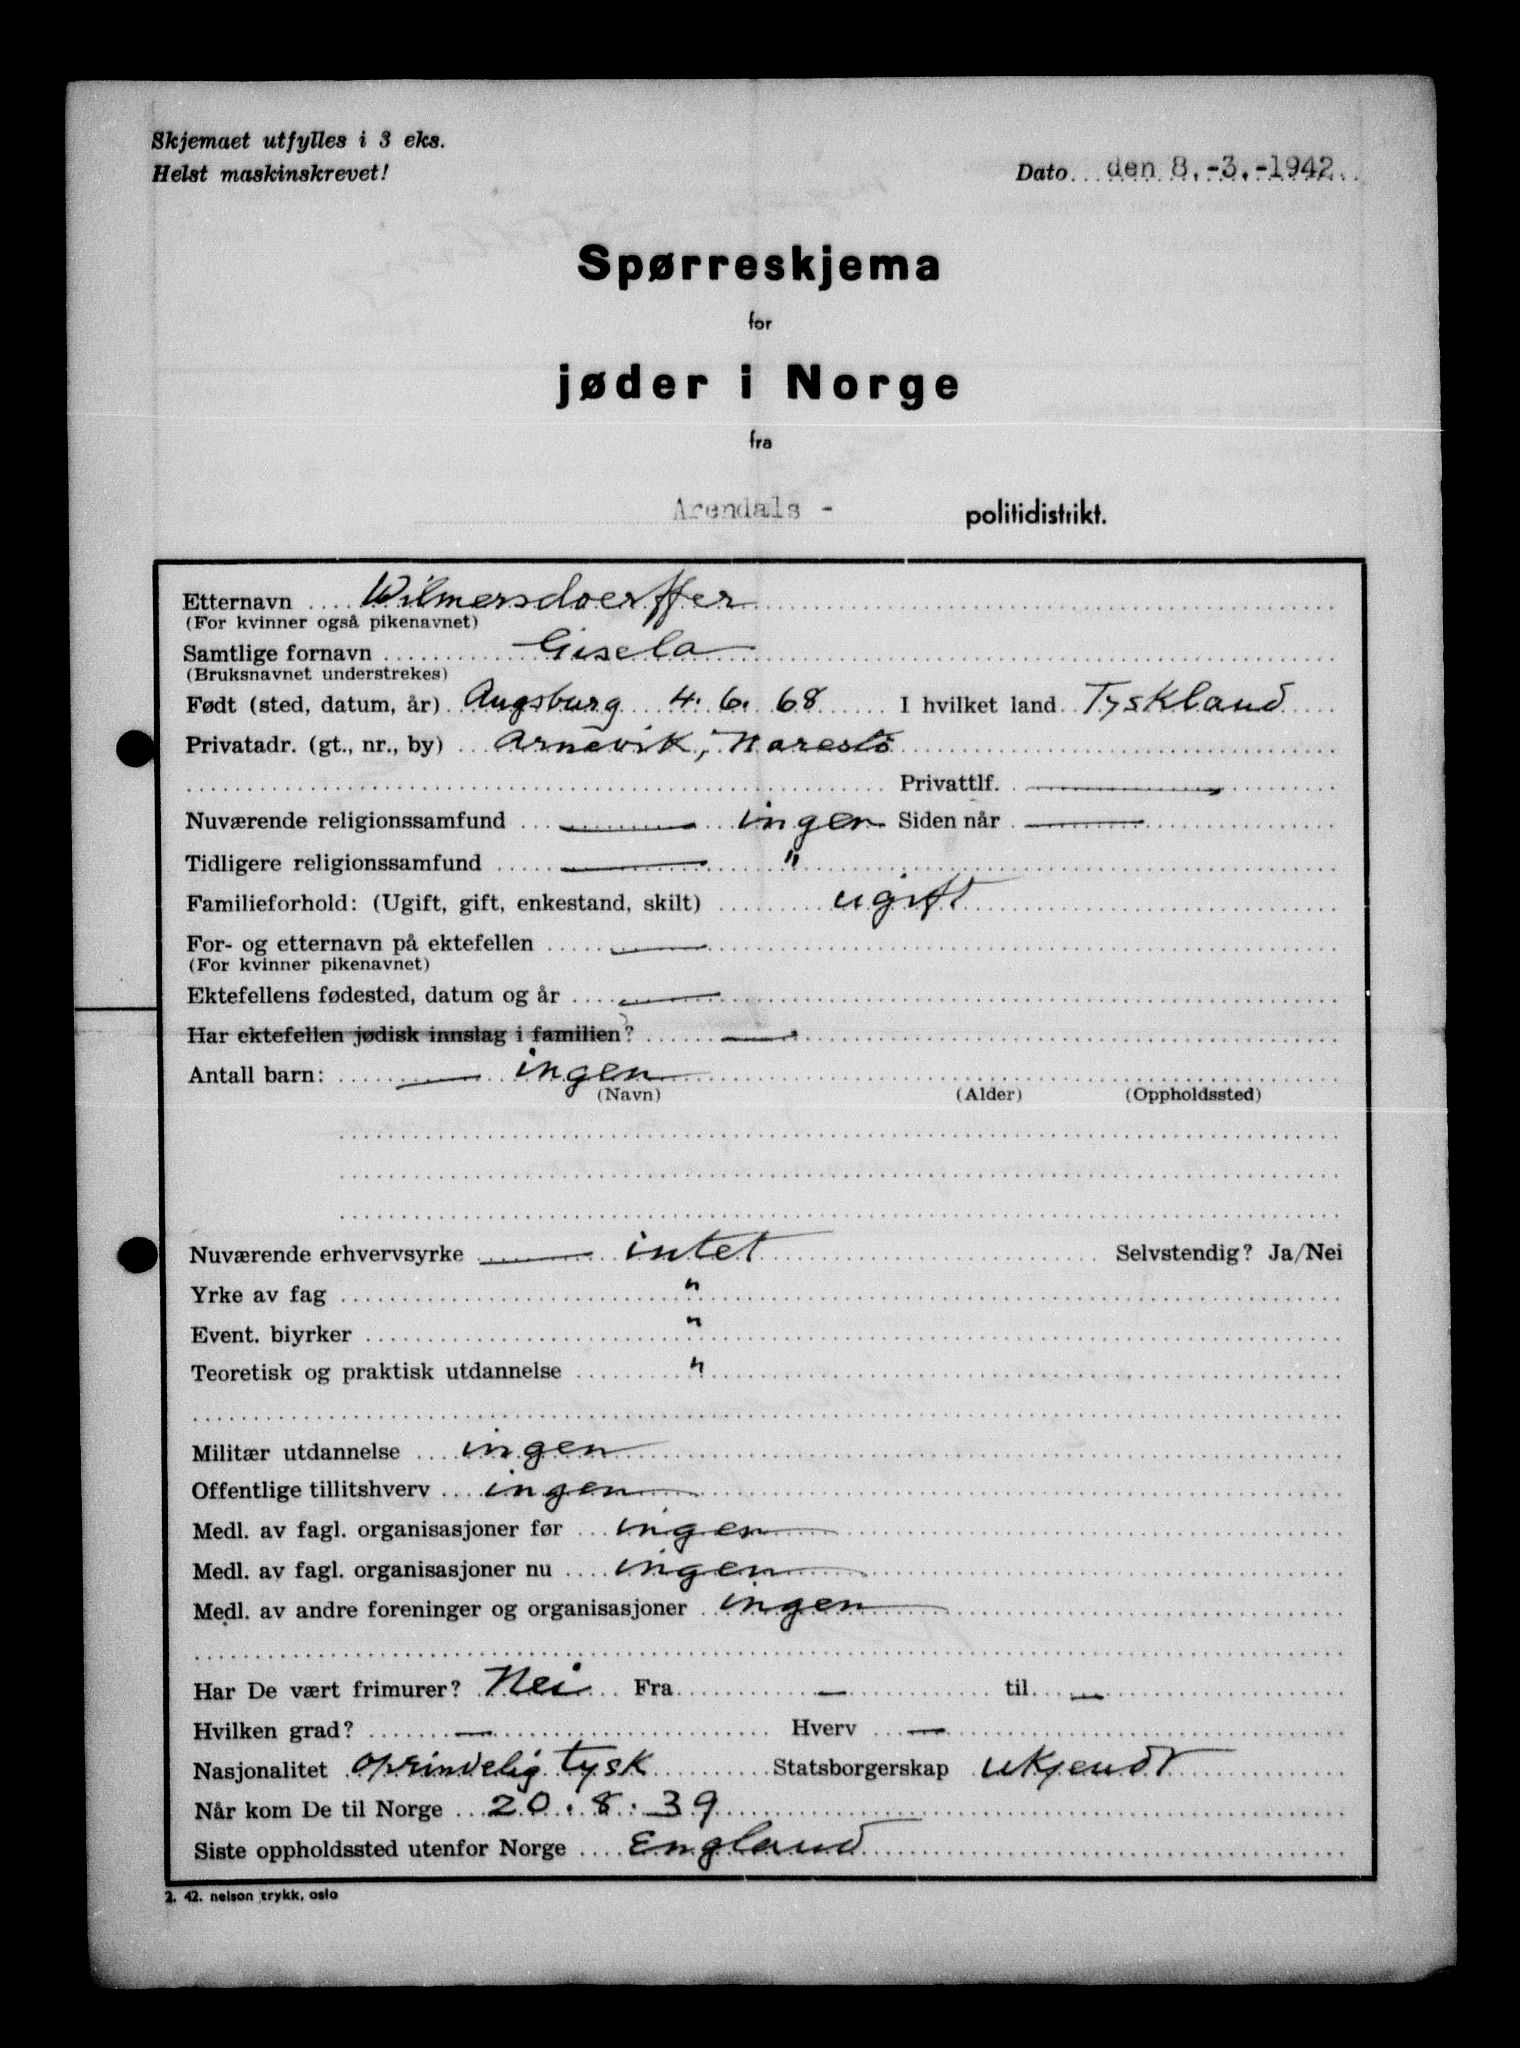 Skjemaet utfylles i 3 eks.
Helst maskinskrevet!
Dato den 8.-3.-1942.
Spørreskjema
for
jøder i Norge
fra
Arendals - politidistrikt.
Etternavn Wilmersdoerffer
(For kvinner også pikenavnet)
Samtlige fornavn Gisela
(Bruksnavnet understrekes)
Født (sted, datum, år) Augsburg 4. 6. 68 I hvilket land Tyskland
Privatadr. (gt., nr., by) Arnevik, Narestö
Privattlf. —
Nuværende religionssamfund — ingen Siden når —
Tidligere religionssamfund — "
Familieforhold: (Ugift, gift, enkestand, skilt) ugift
For- og etternavn på ektefellen —
(For kvinner pikenavnet)
Ektefellens fødested, datum og år —
Har ektefellen jødisk innslag i familien? —
Antall barn: — ingen
(Navn) (Alder) (Oppholdssted)
Nuværende erhvervsyrke — intet Selvstendig? Ja/Nei
Yrke av fag "
Event. biyrker "
Teoretisk og praktisk utdannelse "
Militær utdannelse ingen
Offentlige tillitshverv ingen
Medl. av fagl. organisasjoner før ingen
Medl. av fagl. organisasjoner nu ingen
Medl. av andre foreninger og organisasjoner ingen
Har De vært frimurer? Nei Fra — til —
Hvilken grad? — Hverv —
Nasjonalitet oprindelig tysk Statsborgerskap ukjendt
Når kom De til Norge 20. 8. 39
Siste oppholdssted utenfor Norge England
2. 42. nelson trykk, oslo